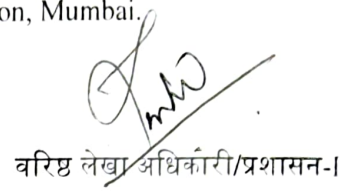 on, Mumbai.
वरिष्ठ लेखा अधिकारी/प्रशासन-I